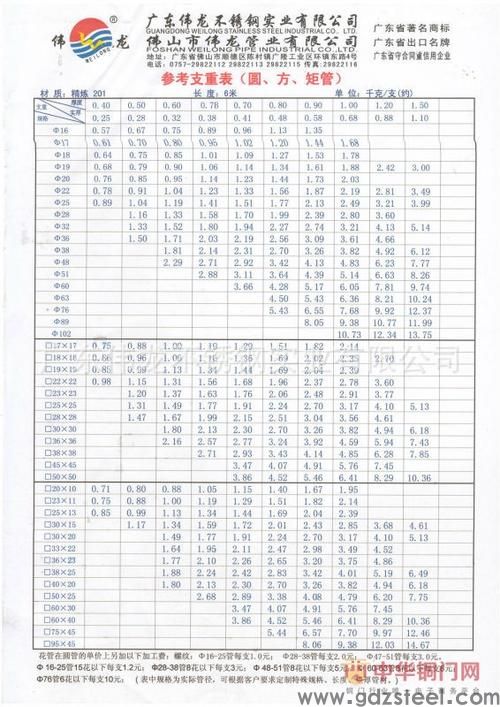 伟龙
WEILONG
广东伟龙不锈钢实业有限公司
GUANGDONG WEILONG STAINLESS STEEL INDUSTRIAL LIMITED
佛山市伟龙管业有限公司
FOSHAN WEILONG PIPE INDUSTRY LIMITED
地址:广东省佛山市顺德区陈村镇广隆工业区环镇东路
电话:0757-29822112 29822113 29822115 传真:29822116
广东省著名商标
广东省出口名牌
广东省守合同重信用企业
参考支重表(圆、方、矩管)
材质:精炼 201 长度:6米 单位:千克/支(约)
支重 厚度 0.40 0.50 0.60 0.78 0.70 0.80 0.90 1.00 1.20 1.50
规格 实厚 0.25 0.28 0.32 0.38 0.41 0.48 0.58 0.68 0.88 1.10
Φ16 0.57 0.67 0.75 0.89 0.96 1.13 1.35
Φ17 0.61 0.70 0.80 0.95 1.02 1.20 1.44 1.68
Φ18 0.64 0.75 0.85 1.01 1.09 1.27 1.53 1.78
Φ19 0.68 0.79 0.90 1.06 1.14 1.34 1.61 1.88 2.42 3.00
Φ20 0.76 0.85 0.95 1.14 1.23 1.44 1.73 2.03
Φ22 0.78 0.91 1.04 1.23 1.33 1.56 1.87 2.19 2.81 3.49
Φ25 0.89 1.04 1.19 1.41 1.51 1.77 2.13 2.49 3.21 3.99
Φ28 1.16 1.33 1.58 1.70 1.99 2.39 2.80 3.60
Φ32 1.33 1.52 1.80 1.94 2.27 2.74 3.21 4.13 5.14
Φ36 1.50 1.71 2.03 2.19 2.56 3.09 3.61 4.66
Φ38 1.81 2.14 2.31 2.70 3.26 3.82 4.92 6.12
Φ48 2.29 2.71 2.92 3.42 4.13 4.83 6.23 7.77
Φ51 2.88 3.11 3.64 4.39 5.14 6.63 8.26
Φ60 3.66 4.28 5.17 6.05 7.81 9.74
Φ63 4.50 5.43 6.36 8.21 10.24
Φ76 5.43 6.55 7.68 9.92 12.37
Φ89 8.05 9.38 10.77 11.99
Φ102 10.73 12.34 13.75
□17×17 0.75 0.88 1.00 1.19 1.29 1.51 1.82 2.14
□18×18 0.86 0.96 1.06 1.26 1.36 1.69 2.02 2.35 2.70
□19×15 0.85 0.98 1.11 1.34 1.44 1.69 2.04 2.39
□22×22 0.98 1.15 1.31 1.56 1.68 1.96 2.37 2.78 3.60
□23×23 1.20 1.37 1.63 1.76 2.06 2.48 2.91
□25×25 1.31 1.49 1.77 1.91 2.24 2.70 3.17 4.10 5.13
□28×28 1.47 1.67 1.99 2.15 2.51 3.04 3.56 4.61
□30×30 1.80 2.13 2.30 2.70 3.26 3.82 4.94 6.18
□36×36 2.16 2.57 2.77 3.24 3.92 4.59 5.94 7.45
□38×38 2.71 2.93 3.43 4.14 4.85 6.28 7.85
□45×45 3.47 4.07 4.91 5.76 7.45
□50×50 3.86 4.52 5.46 6.41 8.29 10.36
□20×10 0.71 0.80 0.88 1.05 1.15 1.40 1.67 1.95
□23×11 0.75 0.88 1.00 1.19 1.29 1.51 1.82 2.14
□25×13 0.85 0.99 1.13 1.34 1.44 1.69 2.04 2.39
□30×15 1.17 1.34 1.59 1.72 2.01 2.43 2.85 3.68 4.61
□30×20 1.49 1.77 1.91 2.24 2.70 3.17 4.10 5.13
□33×22 1.64 1.95 2.11 2.46 2.98 3.49
□36×23 1.77 2.10 2.26 2.65 3.20 3.75
□38×25 1.88 2.24 2.42 2.83 3.42 4.01 5.19 6.49
□40×20 1.80 2.13 2.30 2.70 3.26 3.82 4.94 6.18
□50×25 2.68 2.89 3.38 4.08 4.79 6.20 7.75
□60×30 3.47 4.07 4.91 5.76 7.45
□60×40 3.86 4.52 5.46 6.41 8.29 10.36
□75×45 5.44 6.57 7.70 9.97 12.46
□95×45 8.06 9.38 12.03 14.67
花管在圆管的单价上另加以下加工费:螺纹:Φ16-25管每支1.0元; Φ28-38管每支2.0元; Φ47-51管每支3.0元;
Φ16-25管15花以下每支1.2元; Φ28-38管8花以下每支3元; Φ48-51管8花以下每支5元;
Φ76管6花以下每支10元; (表中规格为实际管径,可根据客户要求定制特殊规格、长度及厚薄管)。
中华铜门网
www.gdzsteel.com